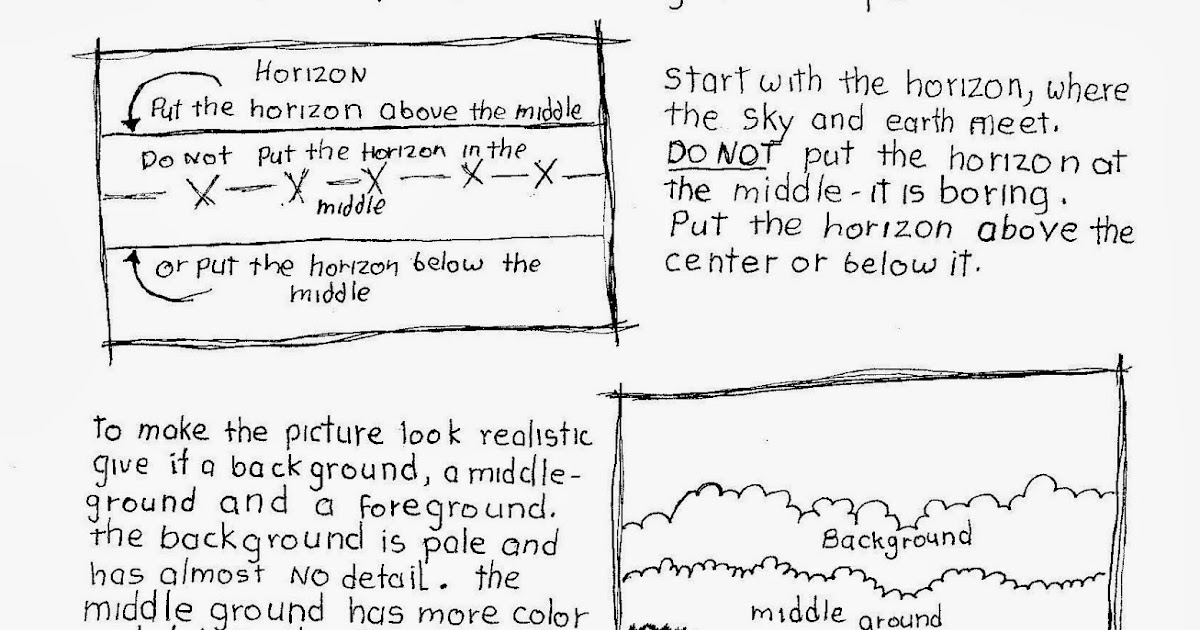 HORIZON
Put the horizon above the middle
Do Not put the Horizon in the
middle
or put the horizon below the
middle
Start with the horizon, where
the sky and earth meet.
DO NOT put the horizon at
the middle - it is boring.
Put the horizon above the
center or below it.
To make the picture look realistic
give it a background, a middle-
ground and a foreground.
the background is pale and
has almost No detail. the
middle ground has more color
Background
middle ground